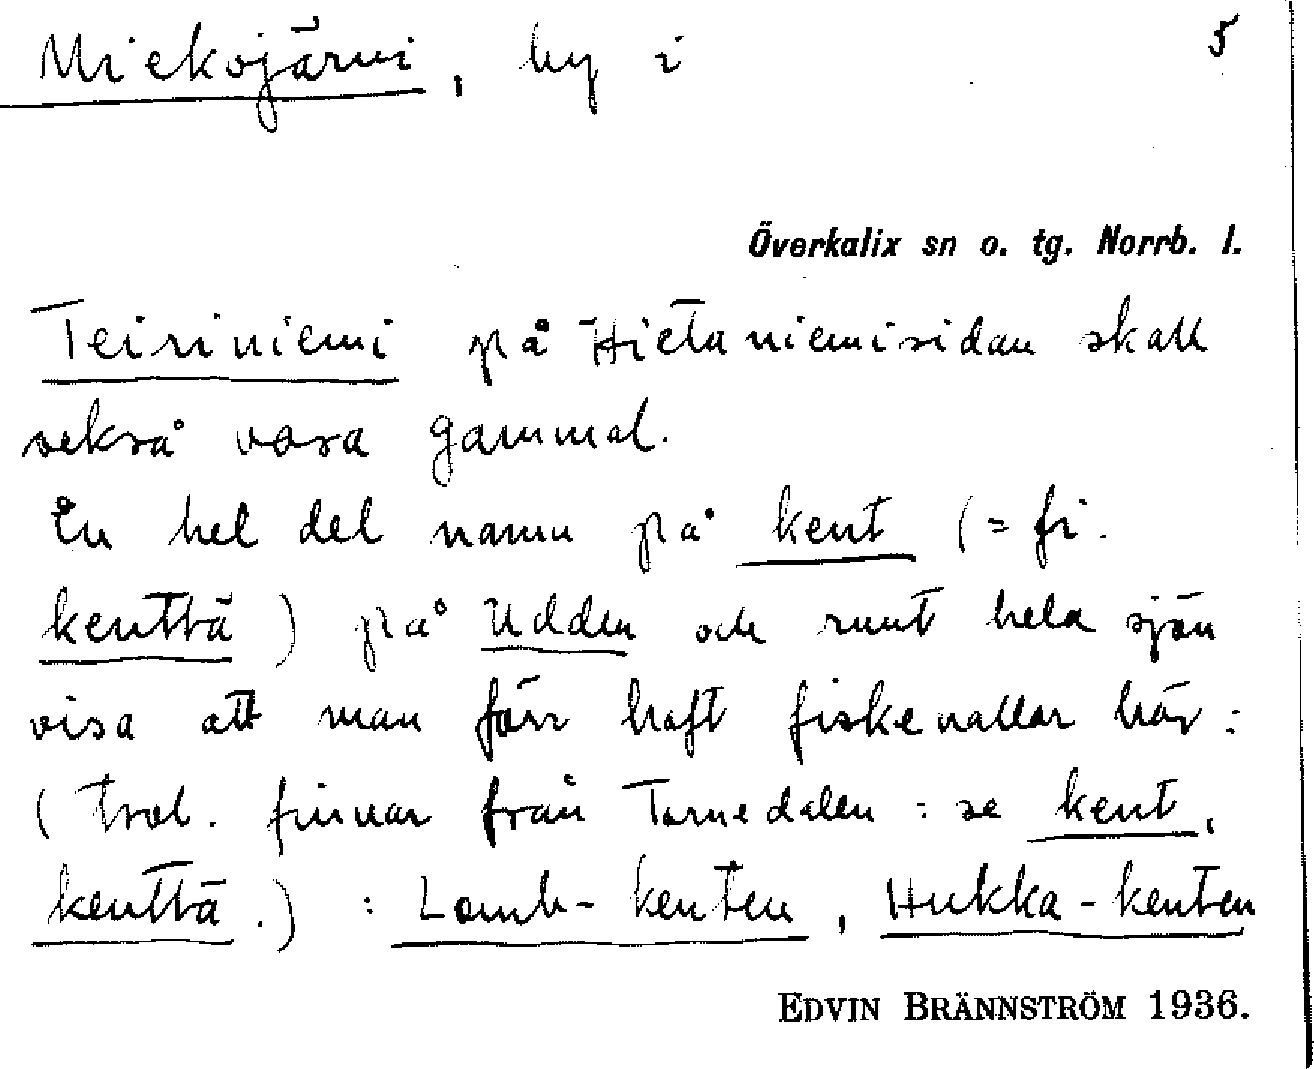 Miekojärvi, by i
5
Överkalix sn o. tg. Norrb. l.
Teiriniemi på Hietaniemisidan skall
också vara gammal.
En hel del namn på kent (= fi.
kenttä) på Udden och runt hela sjön
visa att man förr haft fiskevallar här:
(trol. finnar från Tornedalen: se kent,
kenttä.) : Lomb-kenten, Hukka-kenten
EDVIN BRÄNNSTRÖM 1936.